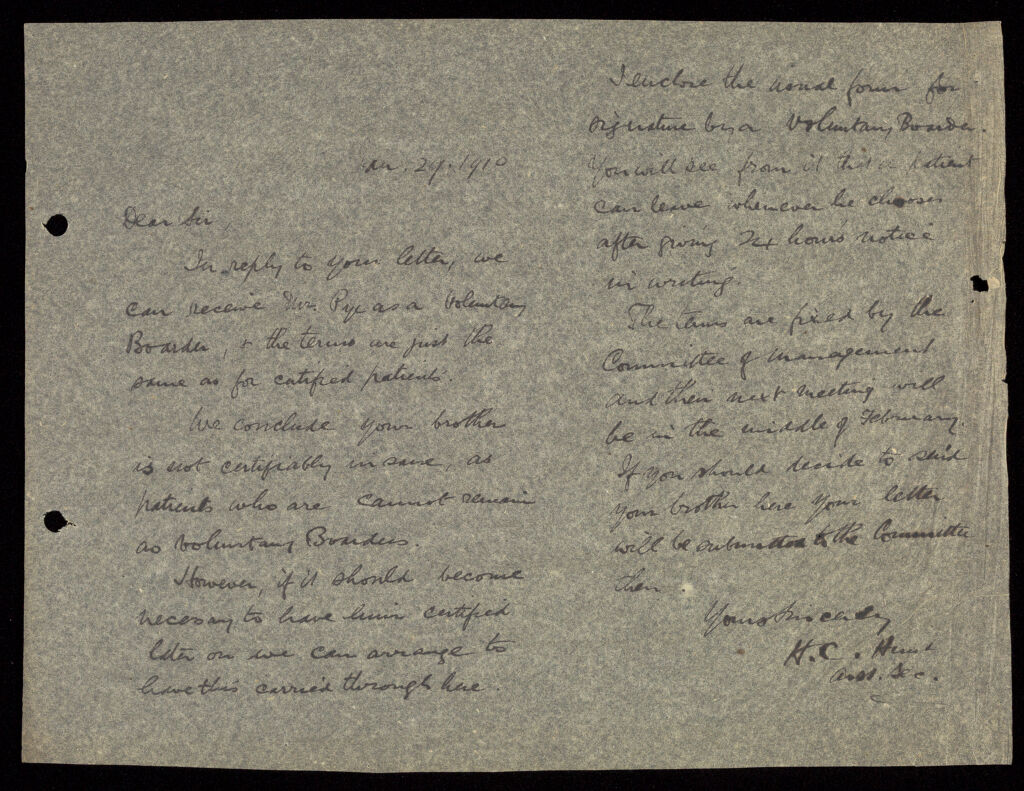 Jan. 29. 1910
Dear Sir
In reply to your letter, we
can receive Mr. Pye as a Voluntary
Boarder, & the terms are just the
same as for certified patients.
We conclude your brother
is not certifiably insane, as
patients who are cannot remain
as Voluntary Boarders.
However, if it should become
necessary to have him certified
later on we can arrange to
have this carried through here.
I enclose the usual form for
signature by a Voluntary Boarder.
You will see from it that a patient
can leave whenever he chooses
after giving hours notice
in writing.
The terms are fixed by the
Committee of Management
and their next meeting will
be in the middle of February.
If you should decide to send
your brother here your letter
will be submitted to the Committee
then.
Yours sincerely
H. C. Hunt
Asst. Sec.